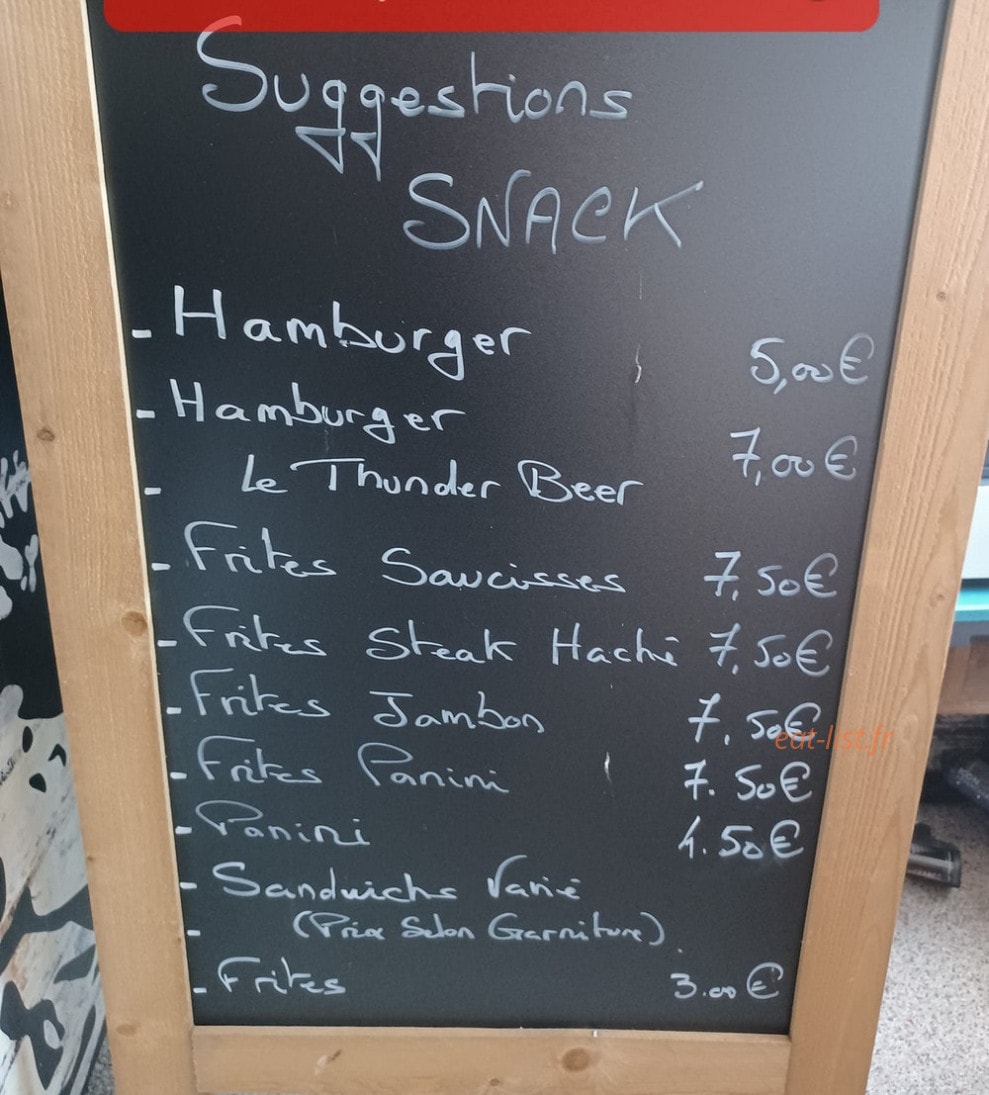 Suggestions
SNACK
- Hamburger 5,00€
- Hamburger 7,00€
- Le Thunder Beer
- Frites Saucisses 7,50€
- Frites Steak Haché 7,50€
- Frites Jambon 7.50€
eat-list.fr
- Frites Panini 7.50€
- Panini 4.50€
- Sandwichs Varié
- (Prix Selon Garniture).
- Frites 3.00€